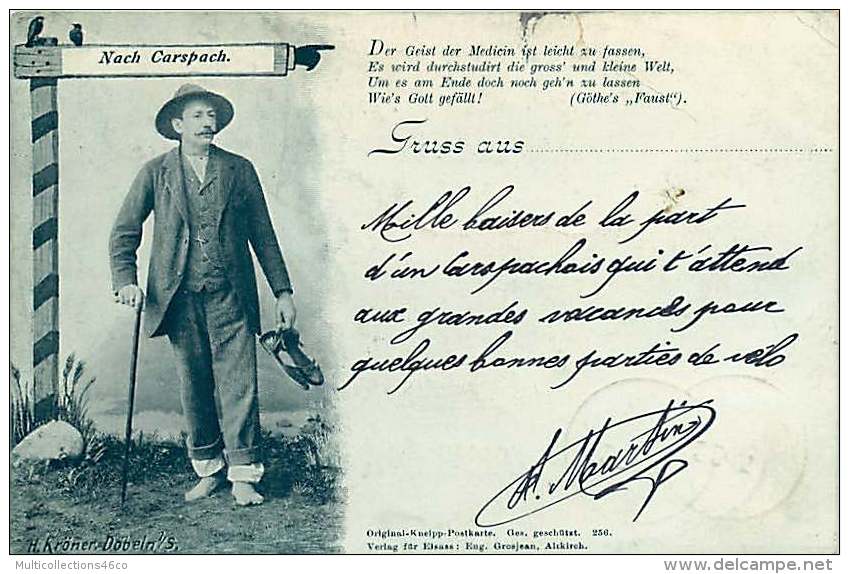 Nach Carspach.
Der Geist der Medicin ist leicht zu fassen,
Es wird durchstudirt die gross' und kleine Welt,
Um es am Ende doch noch geh'n zu lassen
Wie's Gott gefällt! (Göthe's „Faust“).
Gruss aus
Mille baisers de la part
d'un Carspachois qui t'attend
aux grandes vacances pour
quelques bonnes parties de vélo
A. Martin
H. Kröner-Döbeln i/S.
Original-Kneipp-Postkarte. Ges. geschützt. 256.
Verlag für Elsass: Eug. Grosjean, Altkirch.
Multicollections46co
delcampe.net